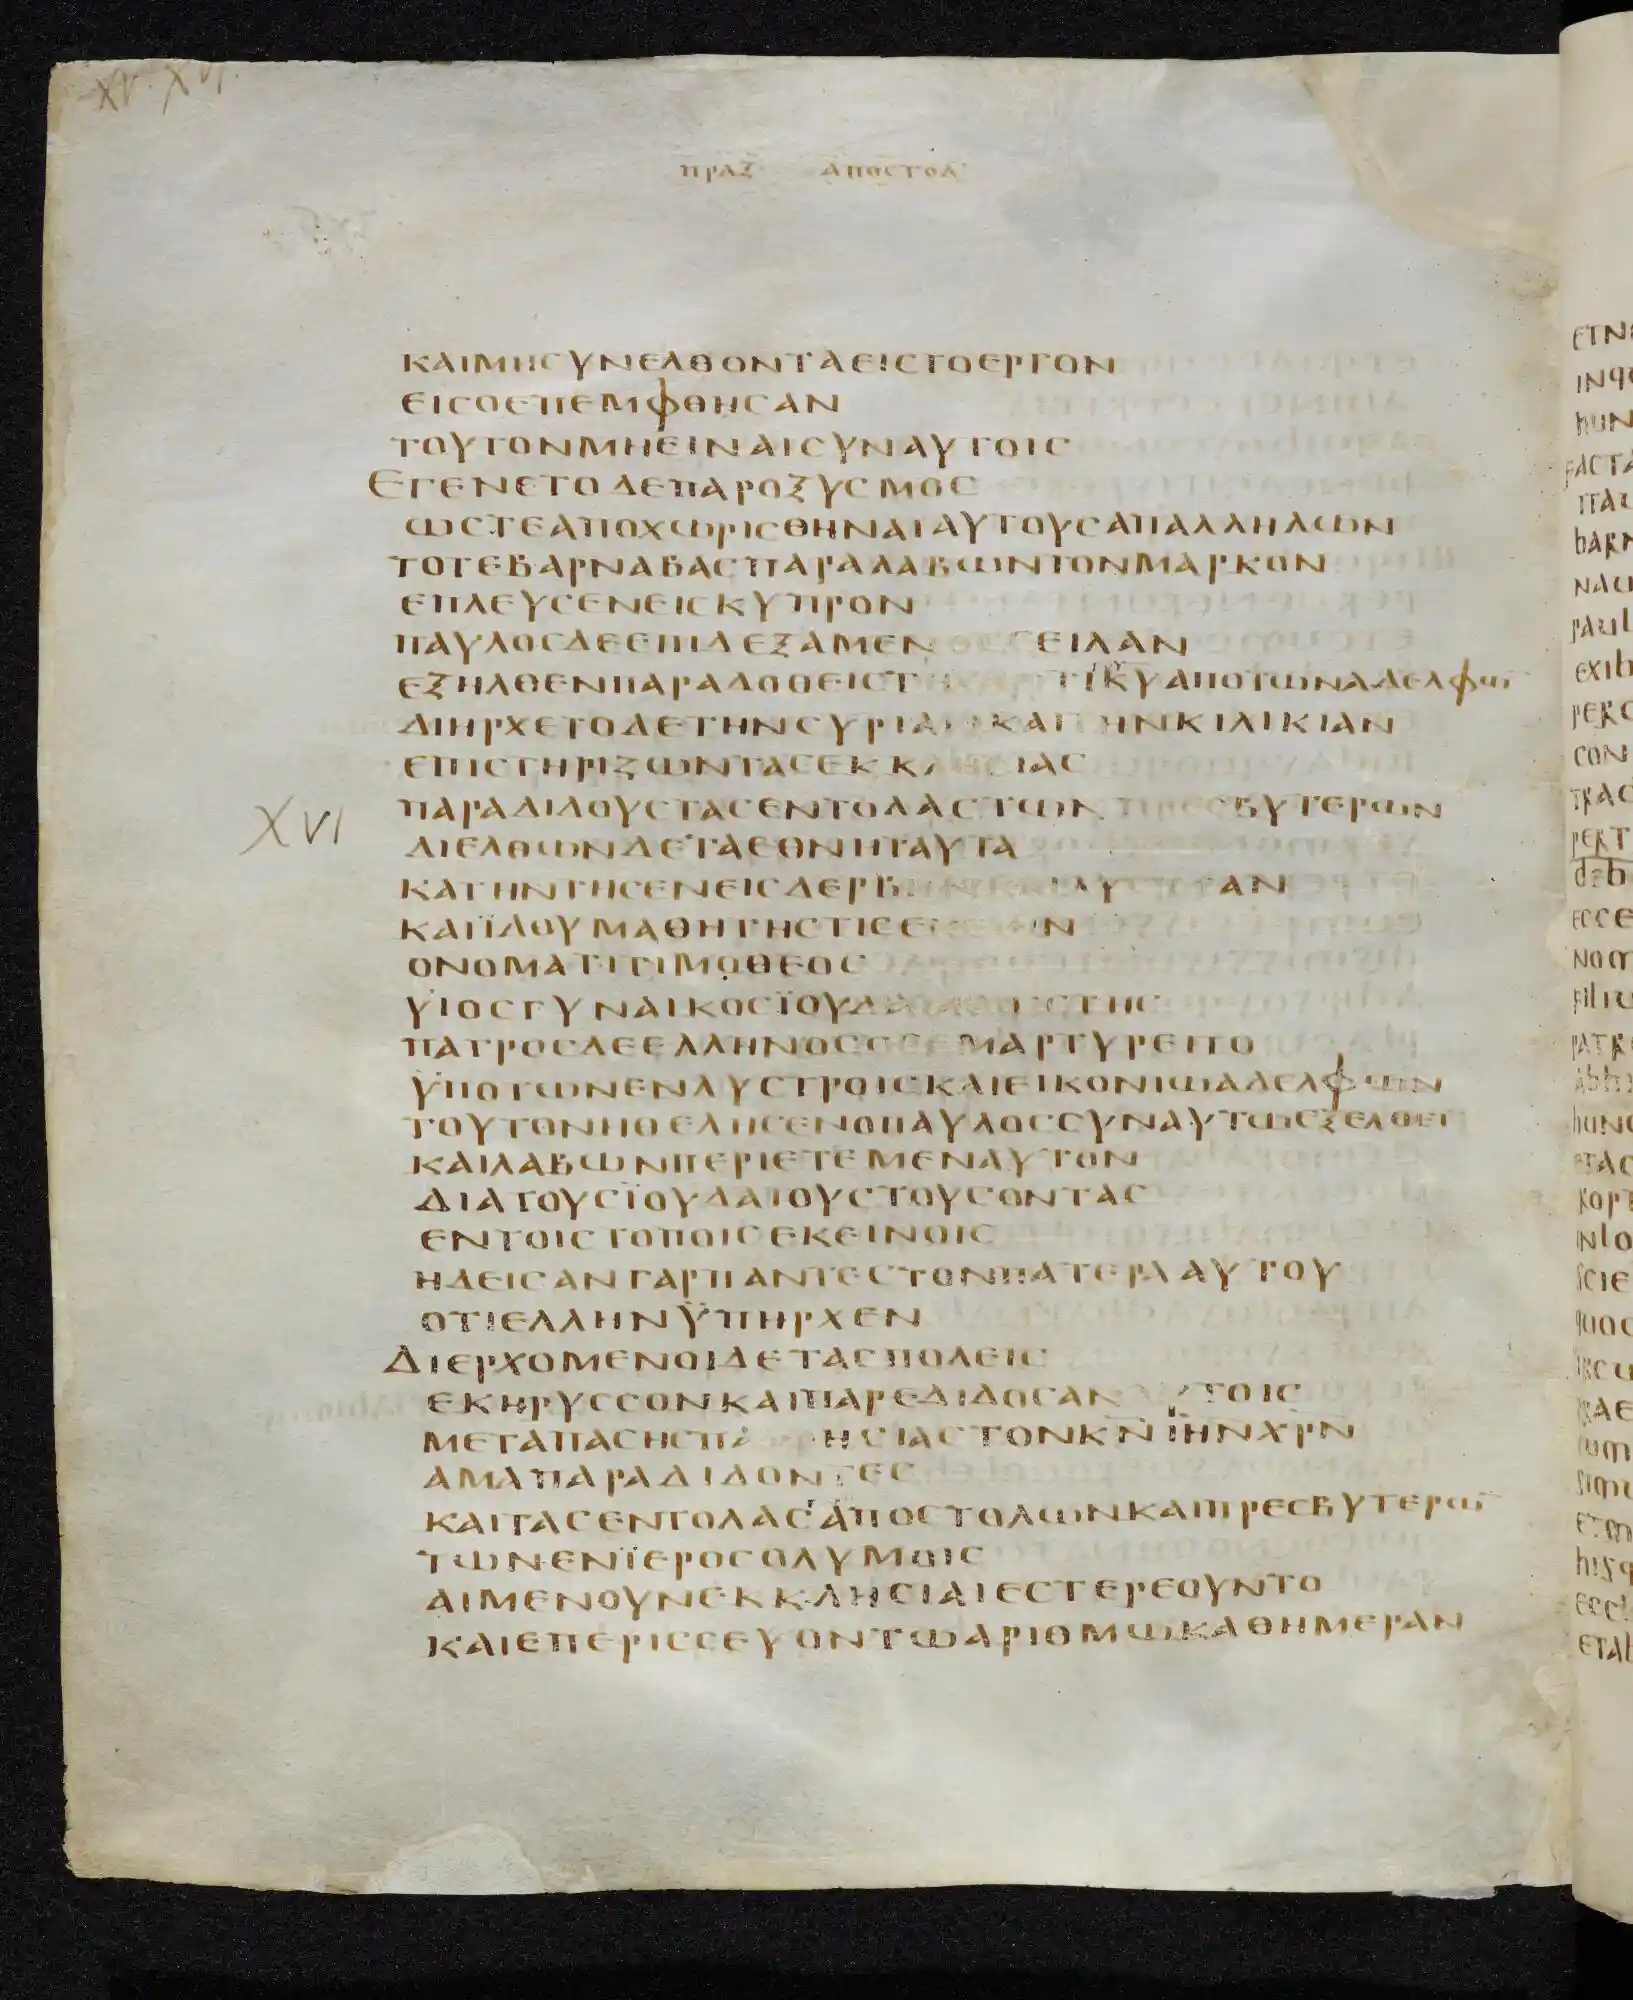 XV. XVI.
ΠΡΑΞ ΑΠΟΣΤΟΛ
ΚΑΙΜΗϹΥΝΕΛΘΟΝΤΑΕΙϹΤΟΕΡΓΟΝ
ΕΙϹΟΕΠΕΜΦΘΗϹΑΝ
ΤΟΥΤΟΝΜΗΕΙΝΑΙϹΥΝΑΥΤΟΙϹ
ΕΓΕΝΕΤΟΔΕΠΑΡΟΞΥϹΜΟϹ
ΩϹΤΕΑΠΟΧΩΡΙϹΘΗΝΑΙΑΥΤΟΥϹΑΠΑΛΛΗΛΩΝ
ΤΟΤΕΒΑΡΝΑΒΑϹΠΑΡΑΛΑΒΩΝΤΟΝΜΑΡΚΟΝ
ΕΠΛΕΥϹΕΝΕΙϹΚΥΠΡΟΝ
ΠΑΥΛΟϹΔΕΕΠΙΔΕΞΑΜΕΝ ϹΕΙΛΑΝ
ΕΞΗΛΘΕΝΠΑΡΑΔΟΘΕΙϹ ΚΥΑΠΟΤΩΝΑΔΕΛΦΩ
ΔΙΗΡΧΕΤΟΔΕΤΗΝϹΥΡΙΑΝΚΑΙΤΗΝΚΙΛΙΚΙΑΝ
ΕΠΙϹΤΗΡΙΖΩΝΤΑϹΕΚΚΛΗϹΙΑϹ
XVI
ΠΑΡΑΔΙΔΟΥϹΤΑϹΕΝΤΟΛΑϹΤΩΝΠΡΕϹΒΥΤΕΡΩΝ
ΔΙΕΛΘΩΝΔΕΤΑΕΘΝΗΤΑΥΤΑ
ΚΑΤΗΝΤΗϹΕΝΕΙϹΔΕΡΒΗΝΚΑΙΛΥϹΤΡΑΝ
ΚΑΙΪΔΟΥΜΑΘΗΤΗϹΤΙϹΕΚΕΙΗΝ
ΟΝΟΜΑΤΙΤΙΜΟΘΕΟϹ
ΥΙΟϹΓΥΝΑΙΚΟϹΪΟΥΔΑΙΑϹΠΙϹΤΗϹ
ΠΑΤΡΟϹΔΕΕΛΛΗΝΟϹΟϹΕΜΑΡΤΥΡΕΙΤΟ
ΫΠΟΤΩΝΕΝΛΥϹΤΡΟΙϹΚΑΙΕΙΚΟΝΙΩΑΔΕΛΦΩΝ
ΤΟΥΤΟΝΗΘΕΛΗϹΕΝΟΠΑΥΛΟϹϹΥΝΑΥΤΩΕΞΕΛΘΕΙ
ΚΑΙΛΑΒΩΝΠΕΡΙΕΤΕΜΕΝΑΥΤΟΝ
ΔΙΑΤΟΥϹΪΟΥΔΑΙΟΥϹΤΟΥϹΟΝΤΑϹ
ΕΝΤΟΙϹΤΟΠΟΙϹΕΚΕΙΝΟΙϹ
ΗΔΕΙϹΑΝΓΑΡΠΑΝΤΕϹΤΟΝΠΑΤΕΡΑΑΥΤΟΥ
ΟΤΙΕΛΛΗΝΫΠΗΡΧΕΝ
ΔΙΕΡΧΟΜΕΝΟΙΔΕΤΑϹΠΟΛΕΙϹ
ΕΚΗΡΥϹϹΟΝΚΑΙΠΑΡΕΔΙΔΟϹΑΝΑΥΤΟΙϹ
ΜΕΤΑΠΑϹΗϹΠΑΡΡΗϹΙΑϹΤΟΝΚΝΙΗΝΧΡΝ
ΑΜΑΠΑΡΑΔΙΔΟΝΤΕϹ
ΚΑΙΤΑϹΕΝΤΟΛΑϹΑΠΟϹΤΟΛΩΝΚΑΙΠΡΕϹΒΥΤΕΡΩ
ΤΩΝΕΝΪΕΡΟϹΟΛΥΜΟΙϹ
ΑΙΜΕΝΟΥΝΕΚΚΛΗϹΙΑΙΕϹΤΕΡΕΟΥΝΤΟ
ΚΑΙΕΠΕΡΙϹϹΕΥΟΝΤΩΑΡΙΘΜΩΚΑΘΗΜΕΡΑΝ